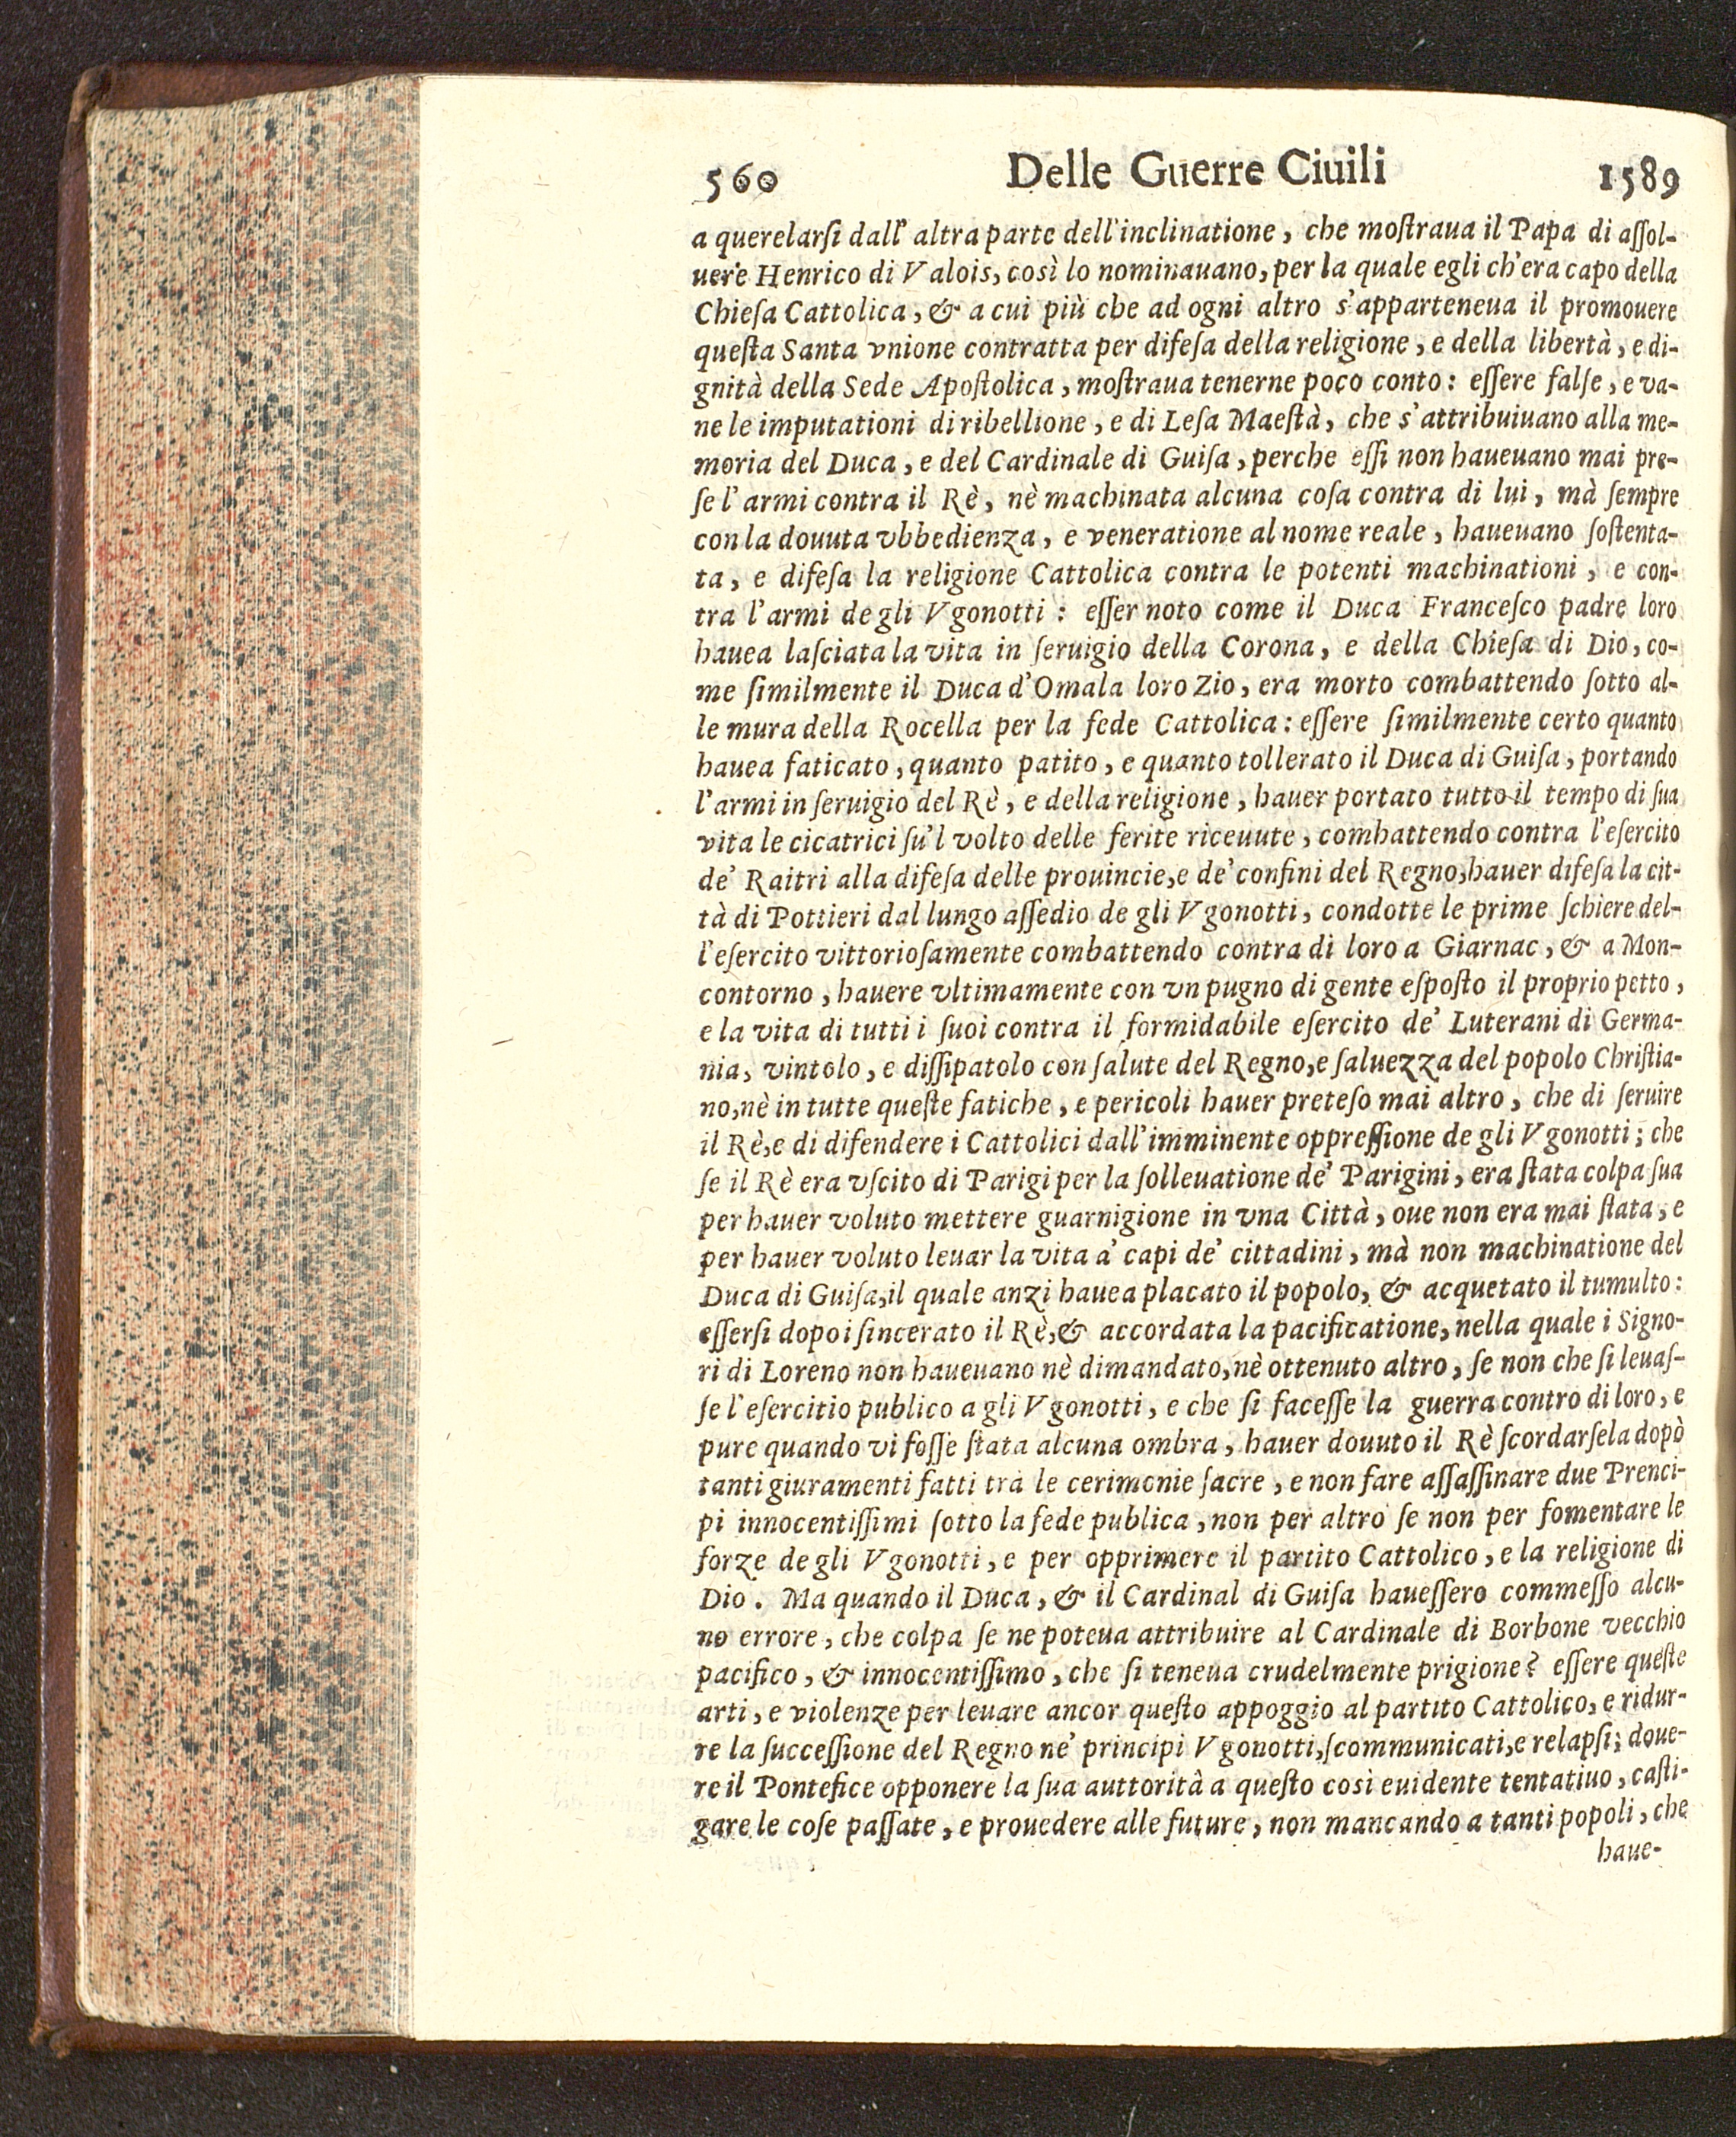 560 Delle Guerre Ciuili 1589
a querelarſi dall' altra parte dell'inclinatione, che moſtraua il Papa di aſſol-
uere Henrico di Valois, così lo nominauano, per la quale egli ch'era capo della
Chieſa Cattolica, & a cui più che ad ogni altro s'apparteneua il promouere
queſta Santa vnione contratta per difeſa della religione, e della libertà, e di-
gnità della Sede Apoſtolica, moſtraua tenerne poco conto: eſſere falſe, e va-
ne le imputationi di ribellione, e di Leſa Maeſtà, che s'attribuiuano alla me-
moria del Duca, e del Cardinale di Guiſa, perche eſſi non haueuano mai pre-
ſe l'armi contra il Rè, nè machinata alcuna coſa contra di lui, mà ſempre
con la douuta vbbedienza, e veneratione al nome reale, haueuano ſoſtenta-
ta, e difeſa la religione Cattolica contra le potenti machinationi, e con-
tra l'armi de gli Vgonotti: eſſer noto come il Duca Franceſco padre loro
hauea laſciata la vita in ſeruigio della Corona, e della Chieſa di Dio, co-
me ſimilmente il Duca d'Omala loro Zio, era morto combattendo ſotto al-
le mura della Rocella per la fede Cattolica: eſſere ſimilmente certo quanto
hauea faticato, quanto patito, e quanto tollerato il Duca di Guiſa, portando
l'armi in ſeruigio del Rè, e della religione, hauer portato tutto il tempo di ſua
vita le cicatrici ſu'l volto delle ferite riceuute, combattendo contra l'eſercito
de' Raitri alla difeſa delle prouincie, e de' confini del Regno, hauer difeſa la cit-
tà di Pottieri dal lungo aſſedio de gli Vgonotti, condotte le prime ſchiere del-
l'eſercito vittorioſamente combattendo contra di loro a Giarnac, & a Mon-
contorno, hauere vltimamente con vn pugno di gente eſpoſto il proprio petto,
e la vita di tutti i ſuoi contra il formidabile eſercito de' Luterani di Germa-
nia, vintolo, e diſſipatolo con ſalute del Regno, e ſaluezza del popolo Chriſtia-
no, nè in tutte queſte fatiche, e pericoli hauer preteſo mai altro, che di ſeruire
il Rè, e di difendere i Cattolici dall'imminente oppreſſione de gli Vgonotti; che
ſe il Rè era vſcito di Parigi per la ſolleuatione de' Parigini, era ſtata colpa ſua
per hauer voluto mettere guarnigione in vna Città, oue non era mai ſtata, e
per hauer voluto leuar la vita a' capi de' cittadini, mà non machinatione del
Duca di Guiſa, il quale anzi hauea placato il popolo, & acquetato il tumulto:
eſſerſi dopoi ſincerato il Rè, & accordata la pacificatione, nella quale i Signo-
ri di Loreno non haueuano nè dimandato, nè ottenuto altro, ſe non che ſi leuaſ-
ſe l'eſercitio publico a gli Vgonotti, e che ſi faceſſe la guerra contro di loro, e
pure quando vi foſſe ſtata alcuna ombra, hauer douuto il Rè ſcordarſela dopò
tanti giuramenti fatti trà le cerimonie ſacre, e non fare aſſaſſinare due Prenci-
pi innocentiſſimi ſotto la fede publica, non per altro ſe non per fomentare le
forze de gli Vgonotti, e per opprimere il partito Cattolico, e la religione di
Dio. Ma quando il Duca, & il Cardinal di Guiſa haueſſero commeſſo alcu-
no errore, che colpa ſe ne poteua attribuire al Cardinale di Borbone vecchio
pacifico, & innocentiſſimo, che ſi teneua crudelmente prigione? eſſere queſte
arti, e violenze per leuare ancor queſto appoggio al partito Cattolico, e ridur-
re la ſucceſſione del Regno ne' principi Vgonotti, ſcommunicati, e relapſi; doue-
re il Pontefice opponere la ſua auttorità a queſto così euidente tentatiuo, caſti-
gare le coſe paſſate, e prouedere alle future, non mancando a tanti popoli, che
haue-